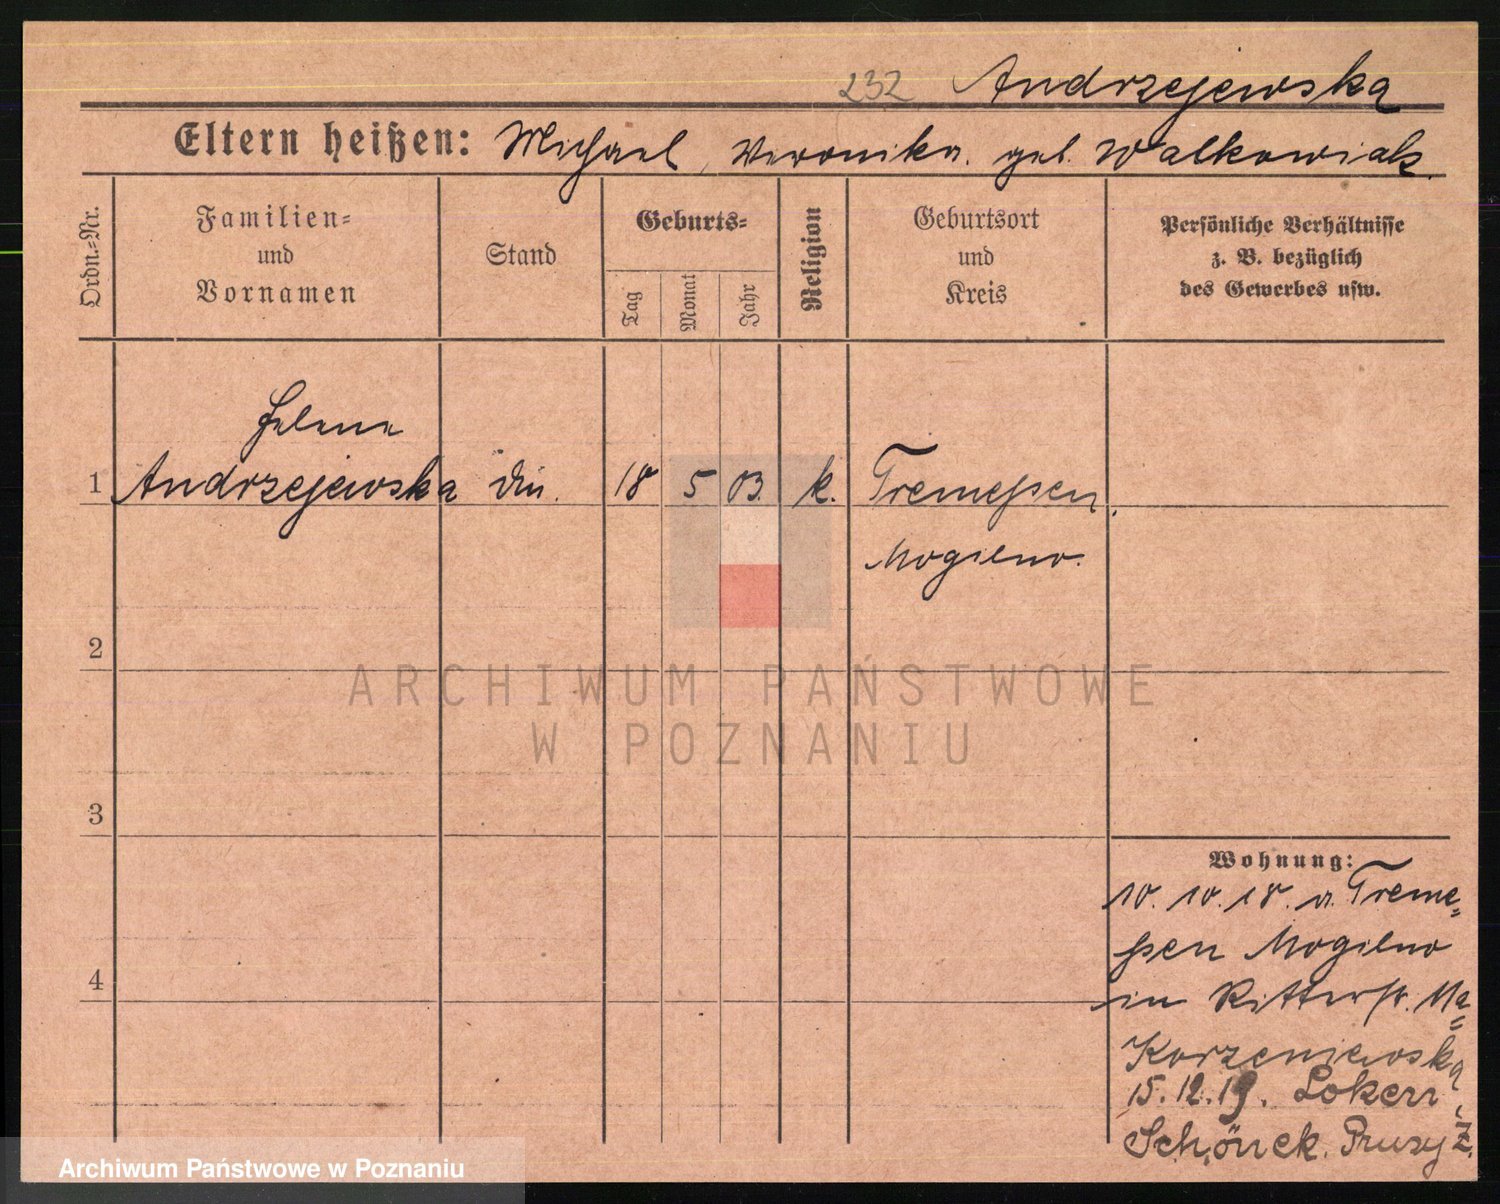 232 Andrzejewska
Eltern heißen: Michael, Weronika. geb. Walkowiak.
Ordn.=Nr.
Familien=
und
Vornamen
Stand
Geburts=
Tag
Monat
Jahr
Religion
Geburtsort
und
Kreis
Persönliche Verhältnisse
z. B. bezüglich
des Gewerbes usw.
Helena
1 Andrzejewska 18 5 03. k. Tremeßen.
Mogilno.
2
ARCHIWUM PAŃSTWOWE
W POZNANIU
3
Wohnung:
10. 10. 18. v. Treme=
ßen Mogilno
4
in Ritterstr. 11a
Korzeniewska
15. 12. 19.
Schöneck. Prusy Z.
Archiwum Państwowe w Poznaniu